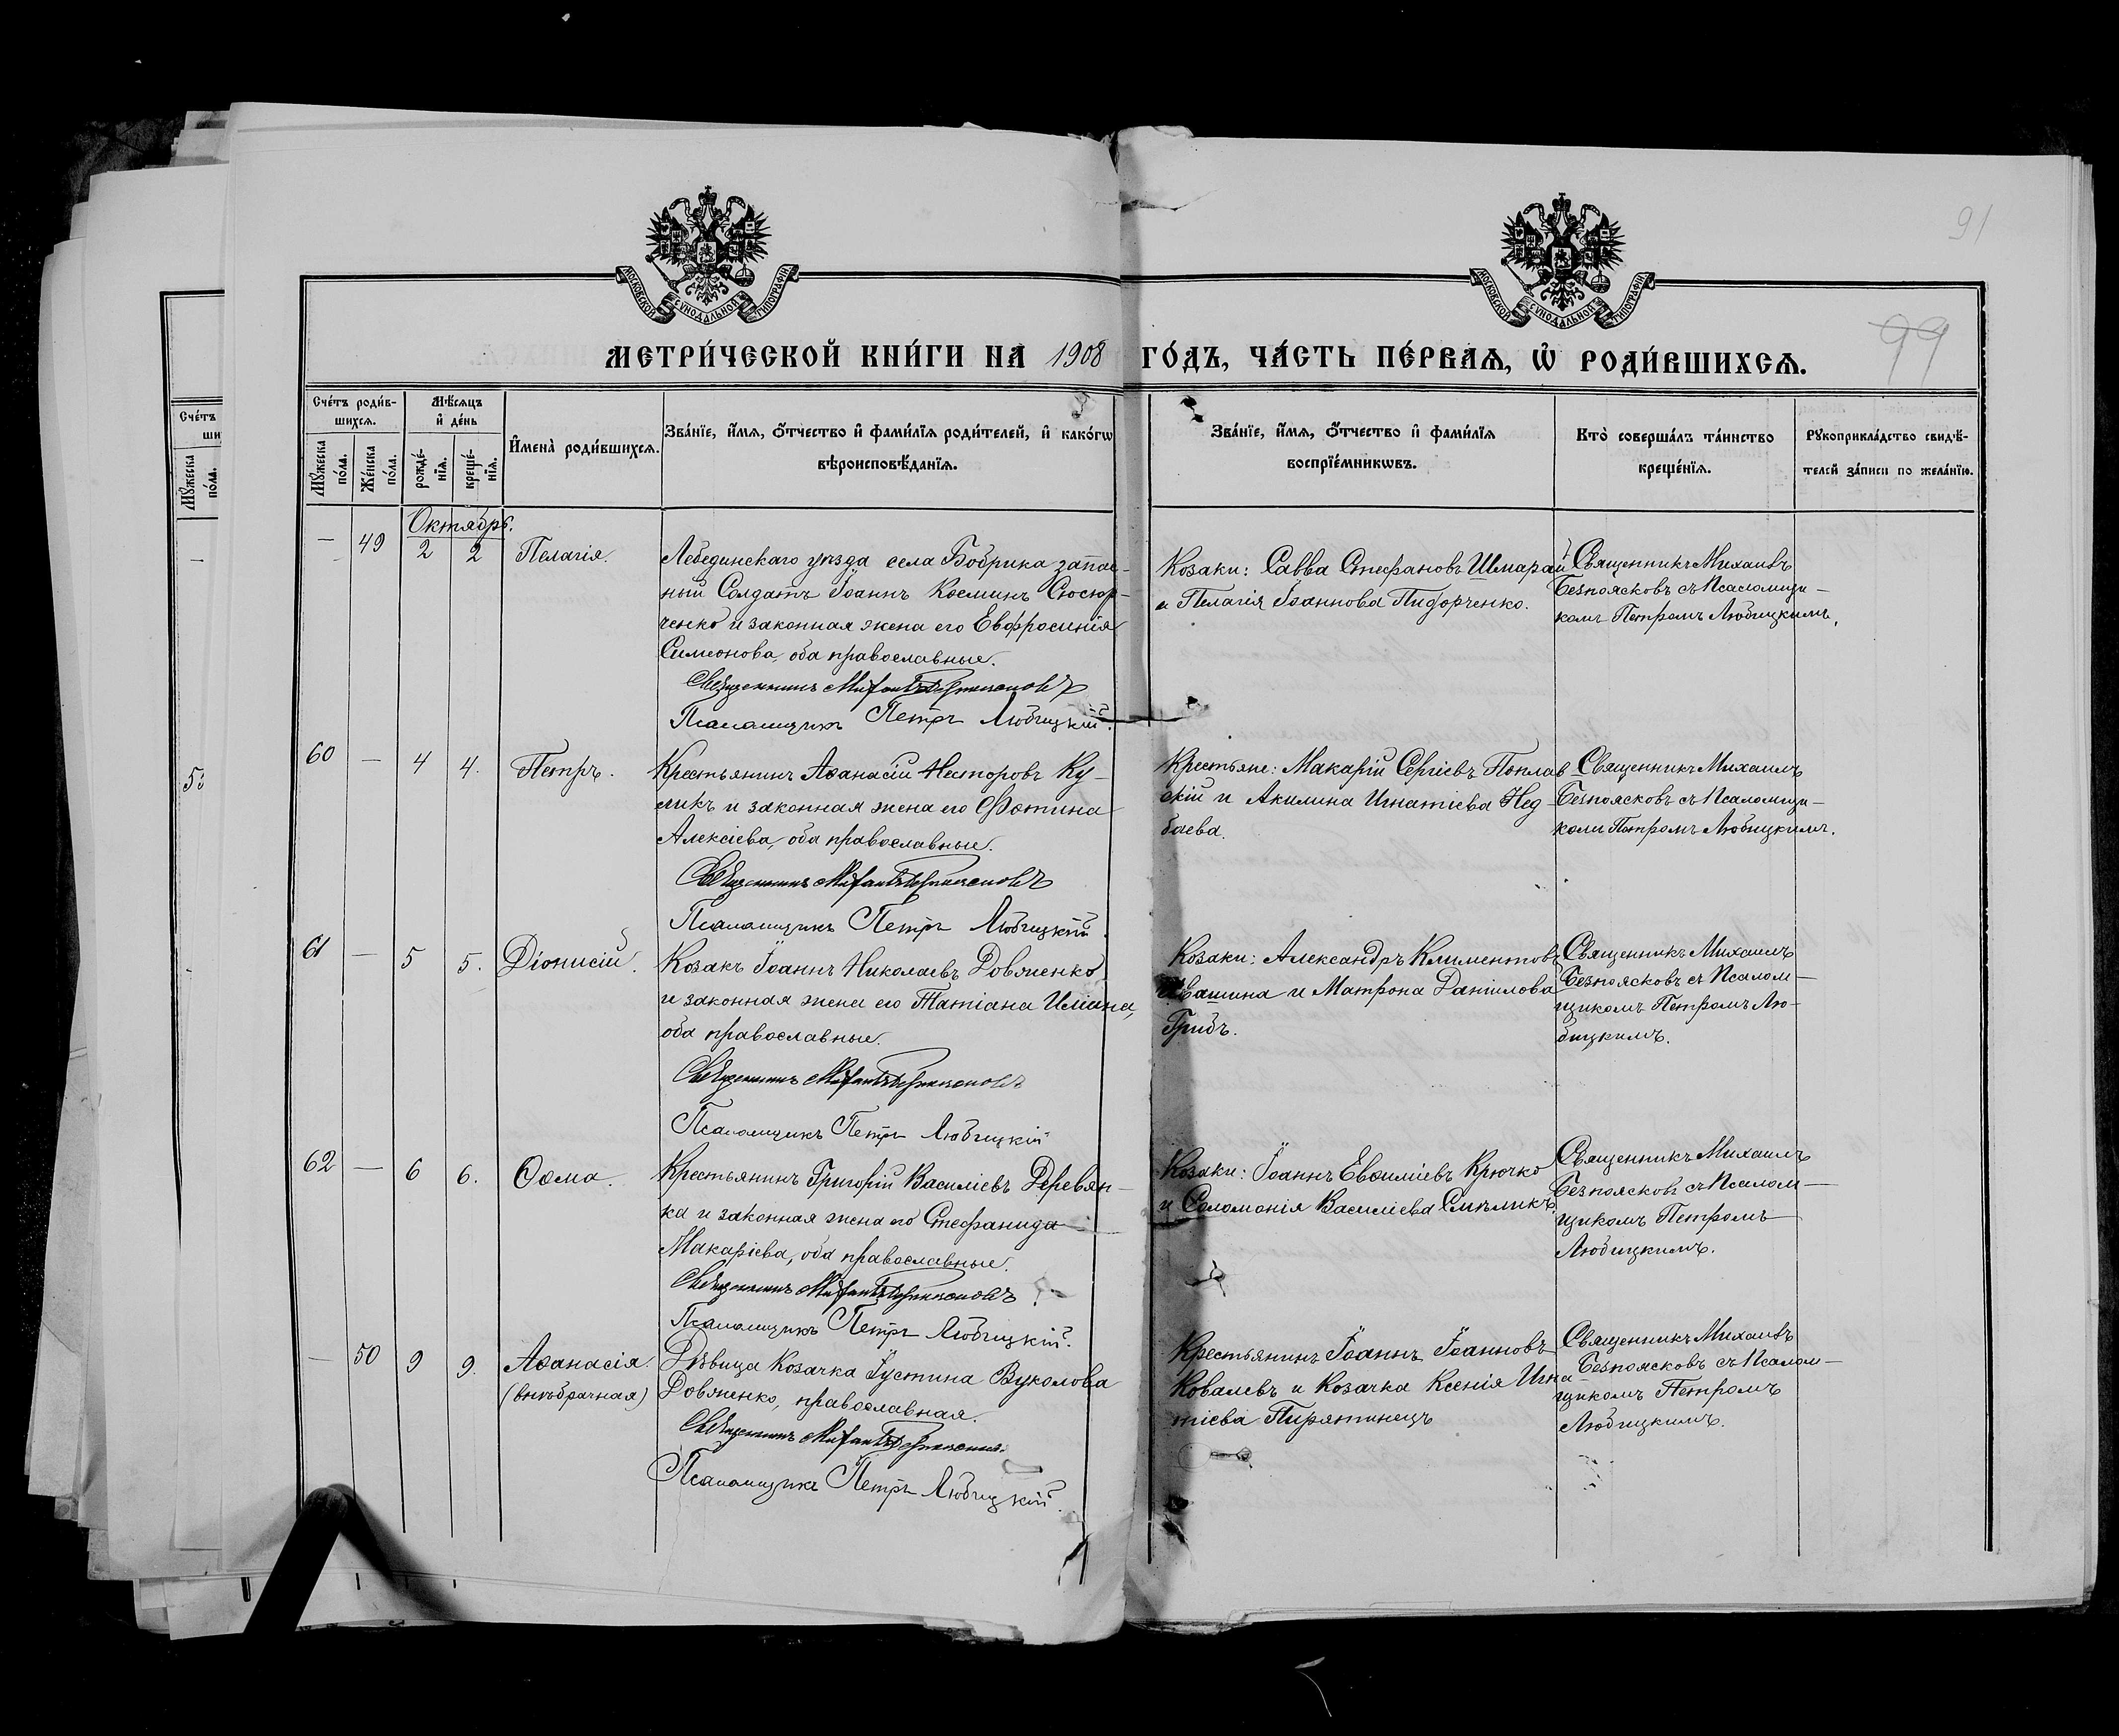 91
МОСКОВСКОЙ СѴНОДАЛЬНОЙ ТИПОГРАФІИ
МОСКОВСКОЙ СѴНОДАЛЬНОЙ ТИПОГРАФІИ
99
МЕТРИ́ЧЕСКОЙ КНИ́ГИ НА 1908 ГО́ДЪ, ЧА́СТЬ ПЕ́РВАѦ, Ѡ҆ РОДИ́ВШИХСѦ.
Сче́тъ роди́в-
шихсѧ.
Мꙋ́жеска по́ла.
Же́нска по́ла.
Мѣ́сѧцъ
и҆ де́нь
рожде́-
нїѧ.
креще́-
нїѧ.
И҆мена̀ роди́вшихсѧ.
Зва́нїе, и҆́мѧ, ѻ҆́тчество и҆ фами́лїѧ роди́телей, и҆ како́гѡ
вѣроисповѣ́данїѧ.
Зва́нїе, и҆́мѧ, ѻ҆́тчество и҆ фами́лїѧ
воспрїе́мникѡвъ.
Кто̀ соверша́лъ та́инство
креще́нїѧ.
Рꙋкоприкла́дство свидѣ́-
телей за́писи по жела́нїю.
Октябрь.
— 49 2 2 Пелагія.
Лебединскаго уѣзда села Бобрика запас-
ный Солдатъ Іоаннъ Косминъ Сюсюр-
ченко и законная жена его Евфросинія
Симеонова, оба православные.
Священникъ Михаилъ Безпоясковъ
Псаломщикъ Петръ Любицкій.
Козаки: Савва Стефановъ Шмарай
и Пелагія Іоаннова Пидорченко.
Священникъ Михаилъ
Безпоясковъ съ Псаломщи-
комъ Петромъ Любицкимъ.
60 — 4 4. Петръ.
Крестьянинъ Аѳанасій Несторовъ Ку-
ликъ и законная жена его Фотина
Алексіева, оба православные.
Священникъ Михаилъ Безпоясковъ
Псаломщикъ Петръ Любицкій.
Крестьяне: Макарій Сергіевъ Поплав
скій и Акилина Игнатіева Нед-
баева.
Священникъ Михаилъ
Безпоясковъ съ Псаломщи-
комъ Петромъ Любицкимъ.
61 — 5 5. Діонисій.
Козакъ Іоаннъ Николаевъ Довженко
и законная жена его Татіана Илiина,
оба православные.
Священникъ Михаилъ Безпоясковъ
Псаломщикъ Петръ Любицкій
Козаки: Александръ Климентовъ
Ивашина и Матрона Даніилова
Грибъ.
Священникъ Михаилъ
Безпоясковъ съ Псалом-
щикомъ Петромъ Лю-
бицкимъ.
62 — 6 6. Ѳома.
Крестьянинъ Григорій Василіевъ Деревян-
ка и законная жена его Стефанида
Макаріева, оба православные.
Священникъ Михаилъ Безпоясковъ
Псаломщикъ Петръ Любицкій.
Козаки: Іоаннъ Евѳиміевъ Крючко
и Соломонія Василіева Смѣликъ.
Священникъ Михаилъ
Безпоясковъ съ Псалом-
щикомъ Петромъ
Любицкимъ.
— 50 9 9. Аѳанасія.
(внѣбрачная)
Дѣвица Козачка Іустина Вуколова
Довженко, православная.
Священникъ Михаилъ Безпоясковъ
Псаломщикъ Петръ Любицкій.
Крестьянинъ Іоаннъ Іоанновъ
Ковалевъ и Козачка Ксенія Игна-
тіева Пирятинецъ
Священникъ Михаилъ
Безпоясковъ съ Псалом-
щикомъ Петромъ
Любицкимъ.